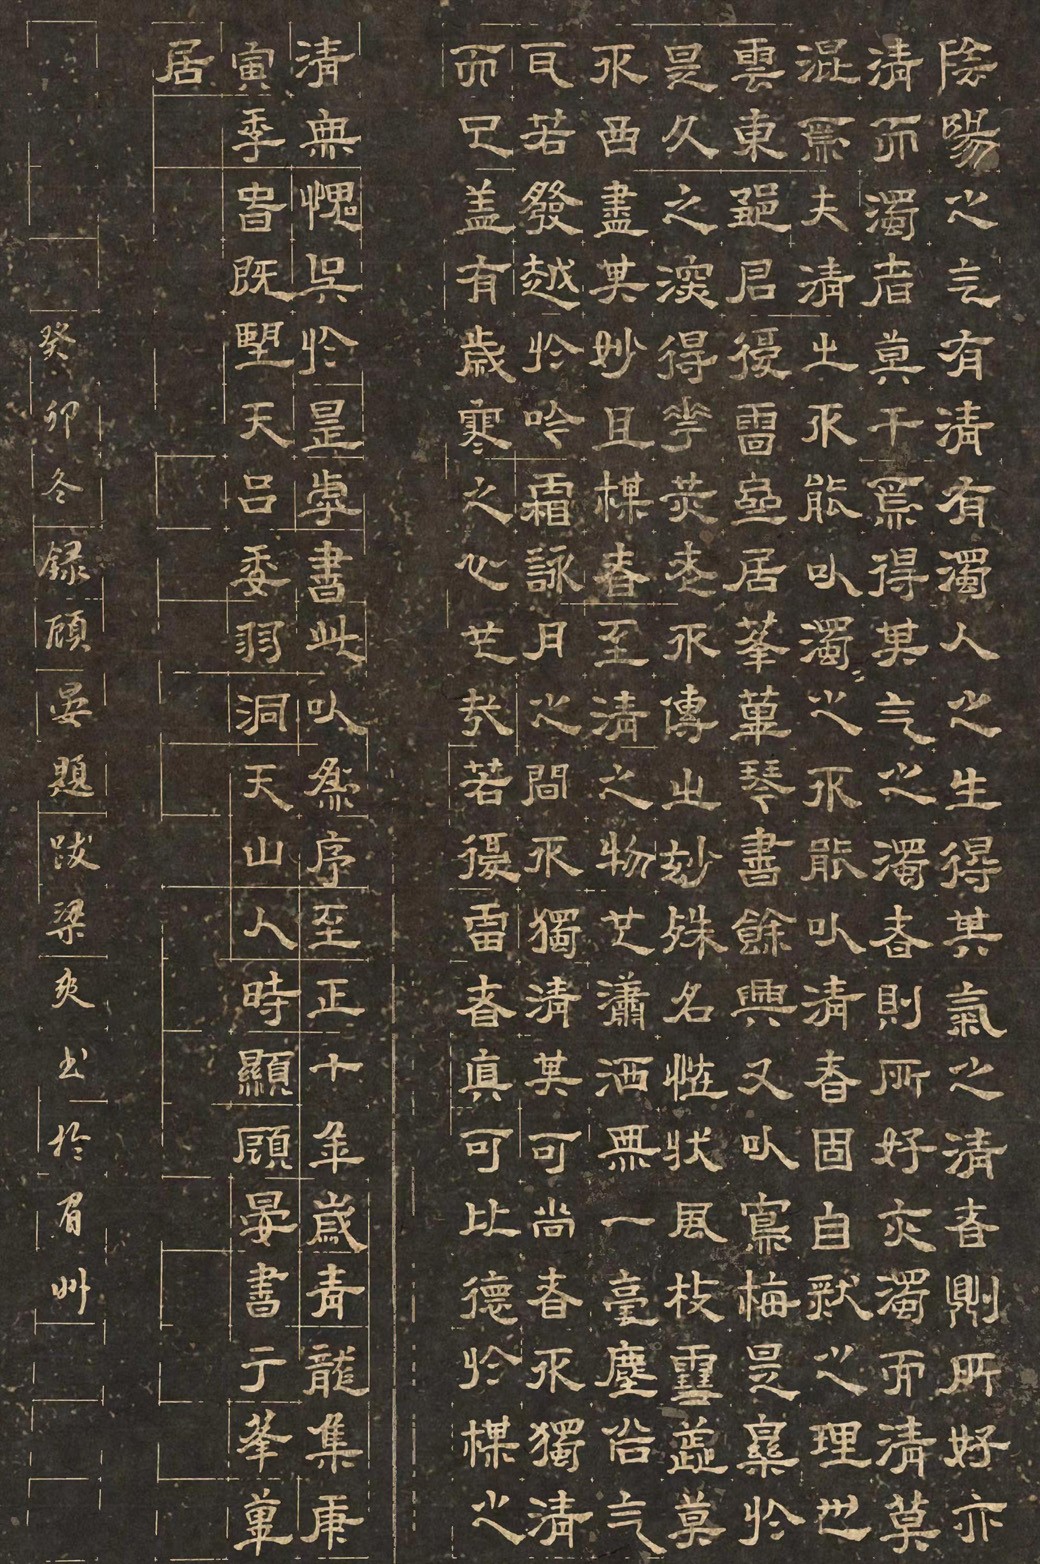 陰陽之气有清有濁人之生得其氣之清者則所好亦
清而濁者莫干焉得其气之濁者則所好亦濁而清莫
混焉夫清之不能以濁之不能以清者固自然之理也
雲東鄒君復雷居蓬蓽琴書餘興又以寫梅是槀於
是久之深得華光老不傳之妙殊名怪狀風枝雪蕊莫
不曲盡其妙且楳者至清之物也瀟洒無一毫塵俗气
可若發越於吟霜詠月之間不獨清其可尚者不獨清
而已蓋有歲寒之心也哉若復雷者真可比德於楳之
清無愧矣於是虖書此以為序至正十年歲青龍集庚
寅季春既朢天台委羽洞天山人時顯顧晏書于蓬蓽
居
癸卯冬錄顧晏題跋梁爽書於眉州